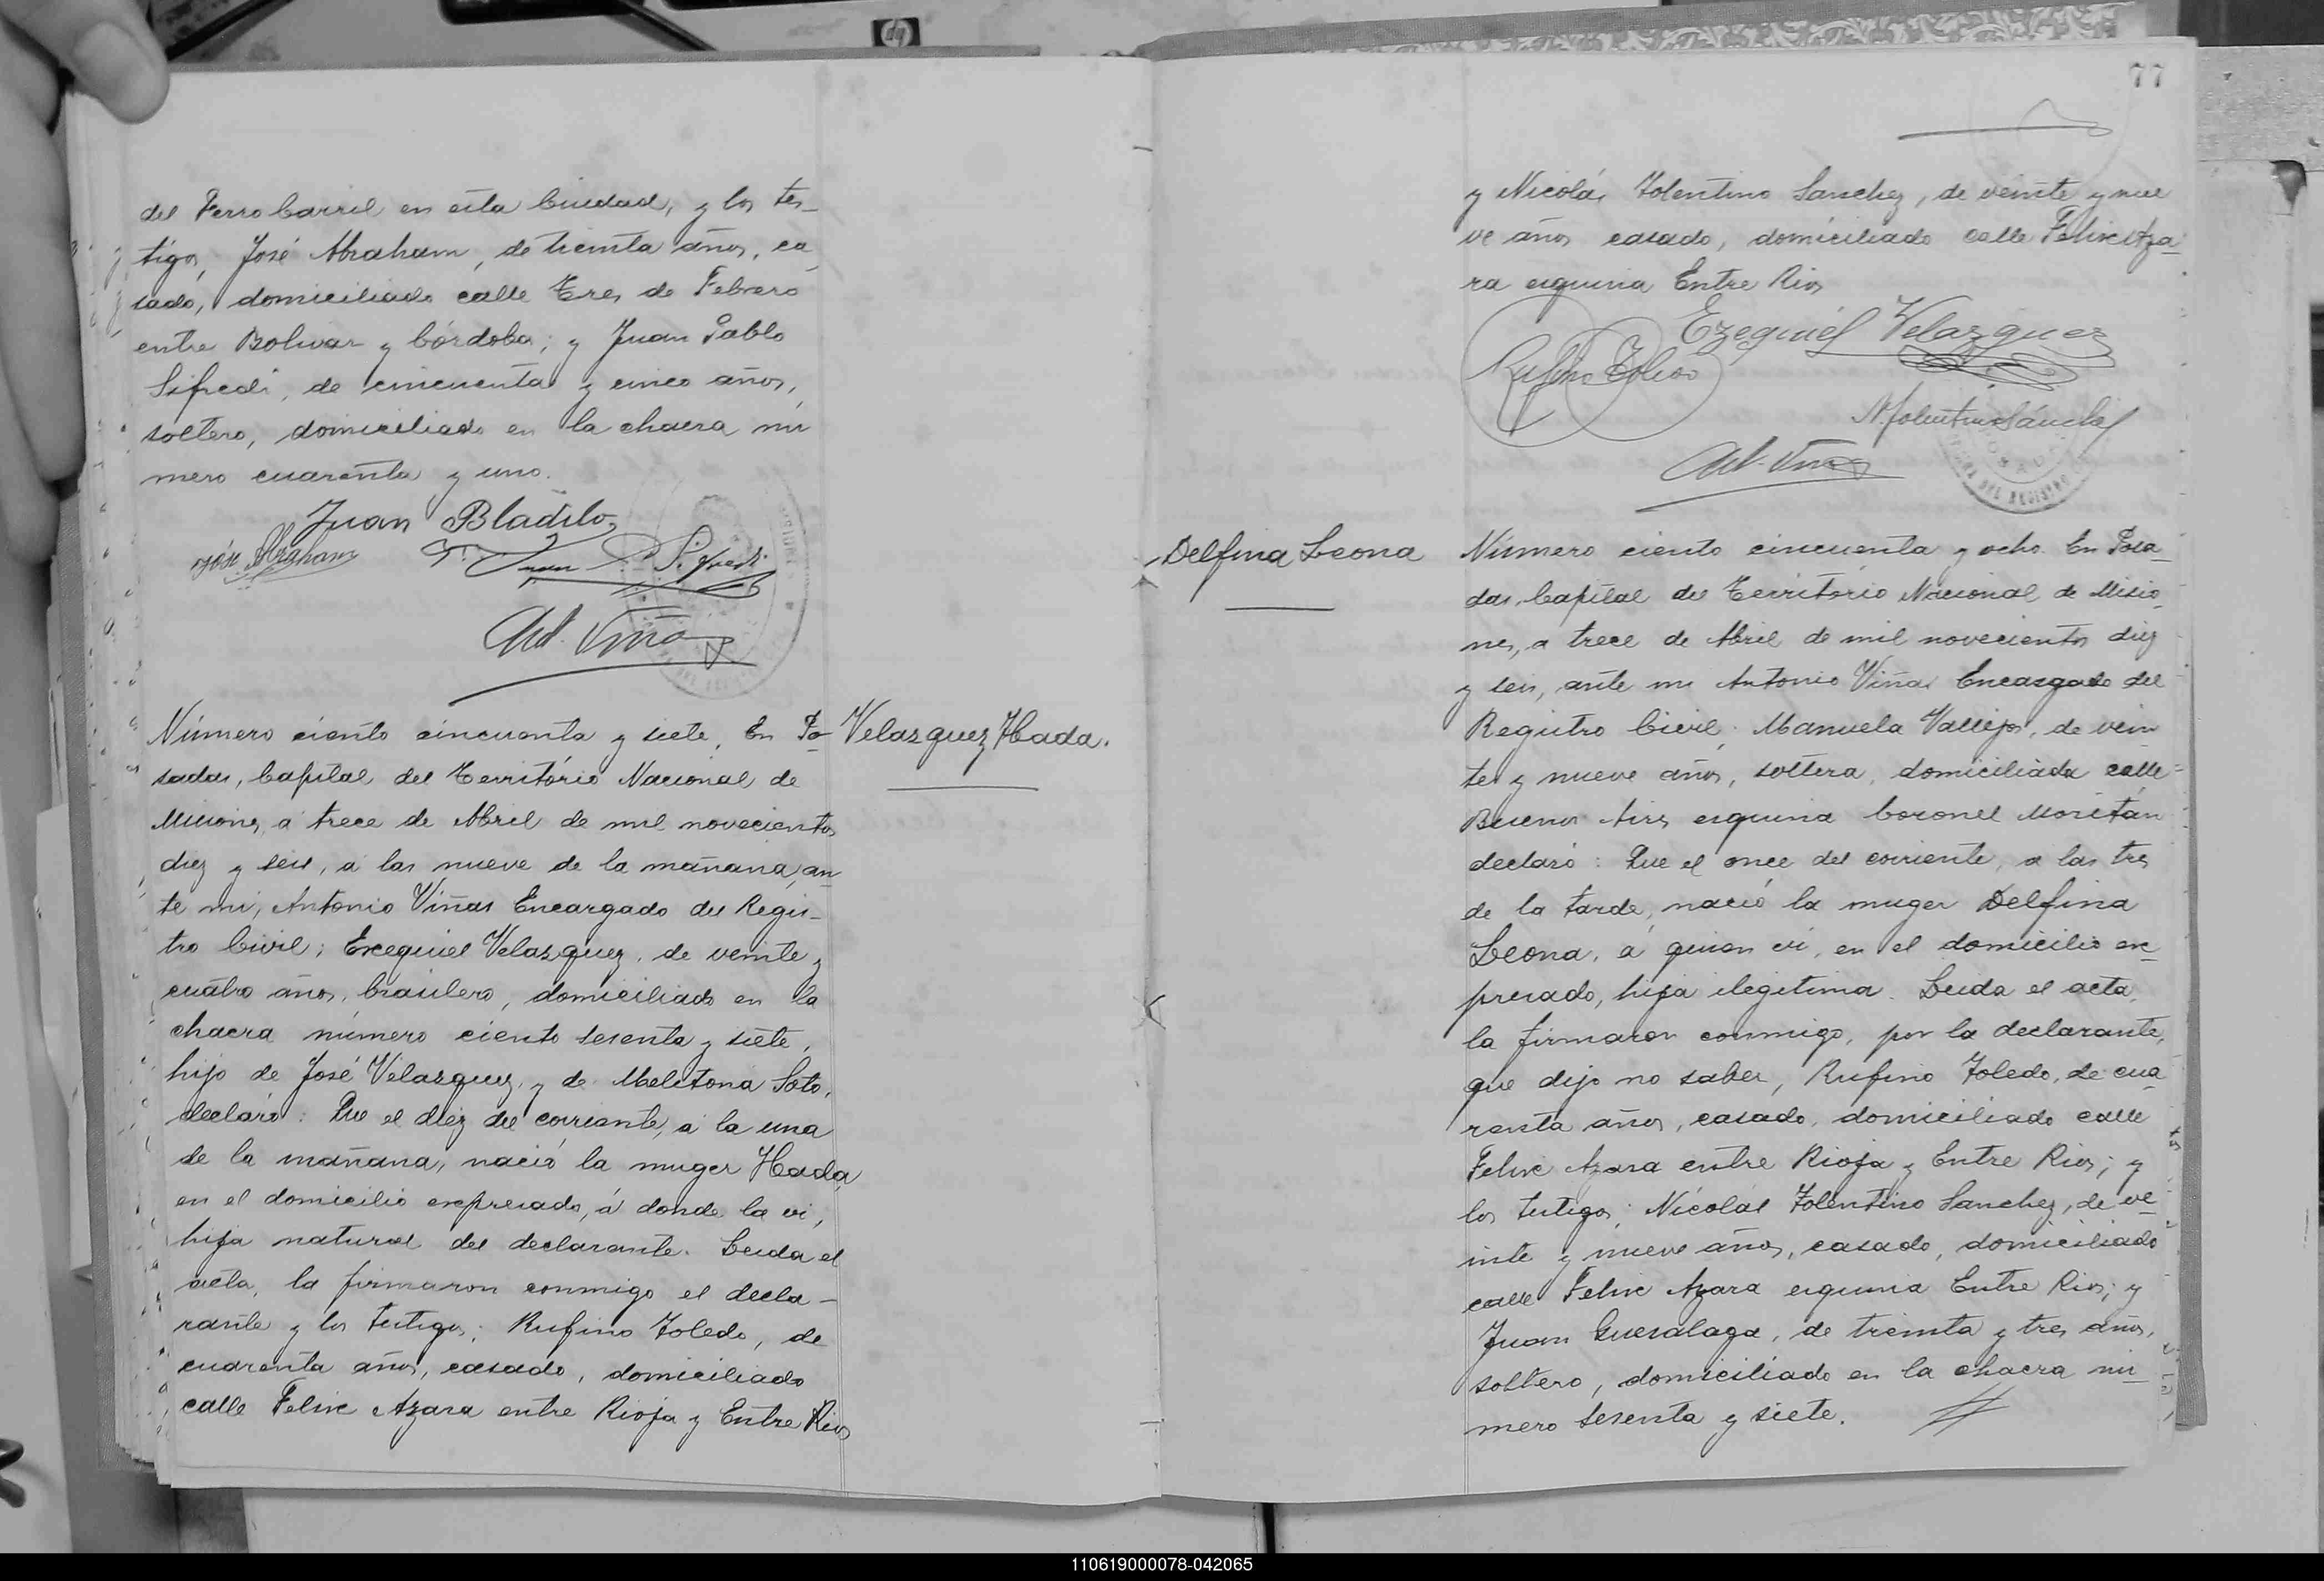 del Ferro Carril en esta Ciudad, y los tes-
tigos, José Abraham, de treinta años, ca
sado, domiciliado calle Tres de Febrero
entre Bolivar y Córdoba; y Juan Pablo
Sifredi, de cincuenta y cinco años,
soltero, domiciliado en la chacra nú
mero cuarenta y uno.
Juan Bladilo
José Abraham
Juan P. Sifredi
Ant. Viñas
Número ciento cincuenta y siete, En Po-
Velazquez Hada.
sadas, Capital del Território Nacional de
Misiones, á trece de Abril de mil novecientos
diez y seis, á las nueve de la mañana, an
te mi, Antonio Viñas Encargado del Regis-
tro Civil; Exequiel Velasquez, de veinte y
cuatro años, brasilero, domiciliado en la
chacra número ciento sesenta y siete,
hijo de José Velasquez, y de Melitona Soto,
declaró: Que el diez del corriente, á la una
de la mañana, nació la muger Hada,
en el domicilio expresado, á donde la vi,
hija natural del declarante. Leida el
acta, la firmaron conmigo el decla-
rante y los testigos; Rufino Toledo, de
cuarenta años, casado, domiciliado
calle Felix Azara entre Rioja y Entre Rios
77
y Nicolás Tolentino Sanchez, de veinte y nue
ve años casado, domiciliado calle Felix Aza-
ra esquina Entre Rios
Ezequiel Velazquez
Rufino Toledo
N. Tolentino Sánchez
Ant. Viñas
DEL REGISTRO
Delfina Leona
Número ciento cincuenta y ocho. En Posa-
das, Capital del Território Nacional de Misio-
nes, a trece de Abril de mil novecientos diez
y seis, ante mi Antonio Viñas Encargado del
Registro Civil; Manuela Vallejos, de vein
te y nueve años, soltera, domiciliada calle
Buenos Aires esquina Coronel Moritán
declaró: Que el once del corriente, a las tres
de la tarde, nació la muger Delfina
Leona, á quien vi, en el domicilio ex-
presado, hija ilegitima. Leida el acta,
la firmaron conmigo, por la declarante,
que dijo no saber, Rufino Toledo, de cua-
renta años, casado, domiciliado calle
Felix Azara entre Rioja y Entre Rios; y
los testigos; Nicolás Tolentino Sanchez, de ve-
inte y nueve años, casado, domiciliado
calle Felix Azara esquina Entre Rios; y
Juan Guesalaga, de treinta y tres años,
soltero, domiciliado en la chacra nú-
mero sesenta y siete.
110619000078-042065